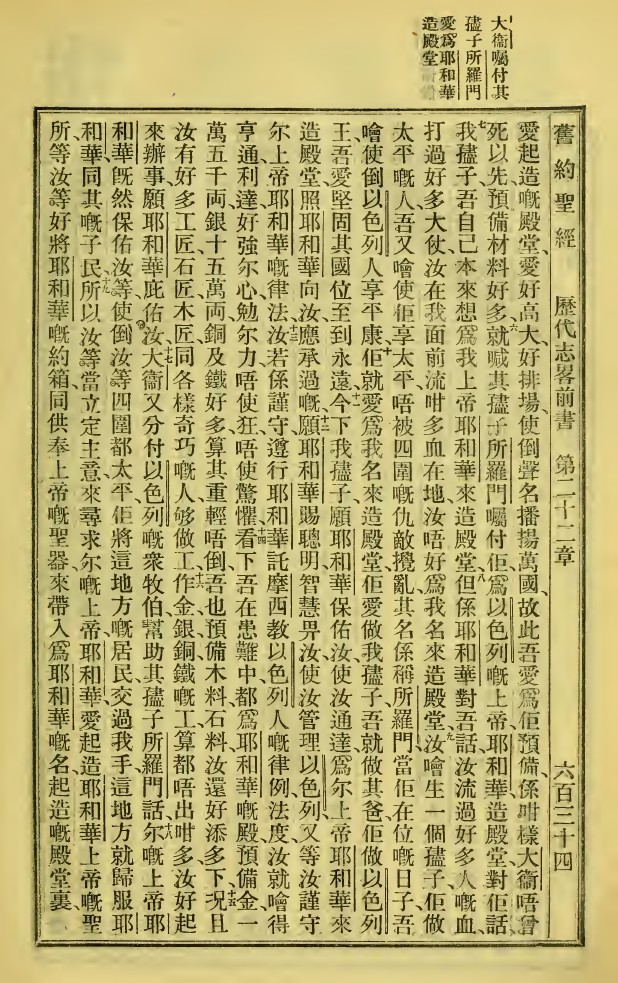 大衞囑付其
孻子所羅門
愛爲耶和華
造殿堂
舊約聖經 歷代志畧前書 第二十二章 六百三十四
愛起造嘅殿堂、愛好高大、好排塲、使倒聲名播揚萬國、故此吾愛爲佢預備、係咁樣大衞唔曾
死以先、預備材料好多、六就喊其孻子所羅門囑付佢、爲以色列嘅上帝耶和華造殿堂、對佢話、
七我孻子、吾自己本來想爲我上帝耶和華來造殿堂、八但係耶和華對吾話、汝流過好多人嘅血、
打過好多大仗、汝在我面前流咁多血在地、汝唔好爲我名來造殿堂、九汝噲生一個孻子、佢做
太平嘅人、吾又噲使佢享太平、唔被四圍嘅仇敵攪亂、其名係稱所羅門、當佢在位嘅日子、吾
噲使倒以色列人享平康、十佢就愛爲我名來造殿堂、佢愛做我孻子、吾就做其爸、佢做以色列
王、吾愛堅固其國位至到永遠、十一今下我孻子、願耶和華保佑汝、使汝通達、爲尔上帝耶和華來
造殿堂、照耶和華向汝應承過嘅、十二願耶和華賜聰明智慧畀汝、使汝管理以色列、又等汝謹守
尔上帝耶和華嘅律法、十三汝若係謹守遵行耶和華託摩西教以色列人嘅律例法度、汝就噲得
亨通利達、好強尔心、勉尔力、唔使狂、唔使驚懼、十四看下吾在患難中、都爲耶和華嘅殿預備金一
萬五千両、銀十五萬両、銅及鐵好多、算其重輕唔倒、吾也預備木料石料、汝還好添多下、十五况且
汝有好多工匠、石匠木匠、同各樣奇巧嘅人、够做工作、十六金銀銅鐵嘅工、算都唔出咁多、汝好起
來辦事、願耶和華庇佑汝、十七大衞又分付以色列嘅衆牧伯、幫助其孻子所羅門話、十八尔嘅上帝耶
和華旣然保佑汝等、使倒汝等四圍都太平、佢將這地方嘅居民交過我手、這地方就歸服耶
和華、同其嘅子民、十九所以汝等當立定主意、來尋求尔嘅上帝耶和華、愛起造耶和華上帝嘅聖
所、等汝等好將耶和華嘅約箱、同供奉上帝嘅聖器、來帶入爲耶和華嘅名起造嘅殿堂裏、